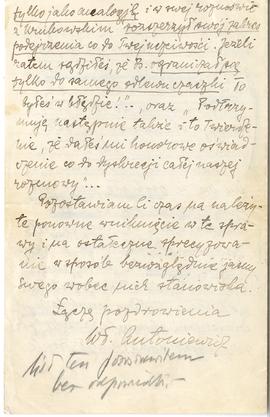 tylko jako analogję i w swej rozmowie
z Wrubowskim "rozszerzył swój zakres
podejrzenia co do Twej uczciwości. Jeżeli
zatem sądziłeś, że B. ogranicza się
tylko do samego odlewu czaszki to
byłeś w błędzie!"... oraz "Podtrzy-
muję następnie także i to Twierdze-
nie, że dałeś mi honorowe oświad-
czenie co do dyskrecji całej naszej
rozmowy"...
Pozostawiam Ci czas na należy-
te ponowne wniknięcie w te spra-
wy i na ostateczne sprecyzowa-
nie w sposób bezwzględnie jasny
Swego wobec mnie stanowiska.
Łączę pozdrowienia
Wł. Antoniewicz
List ten pozostawiłem
bez odpowiedzi